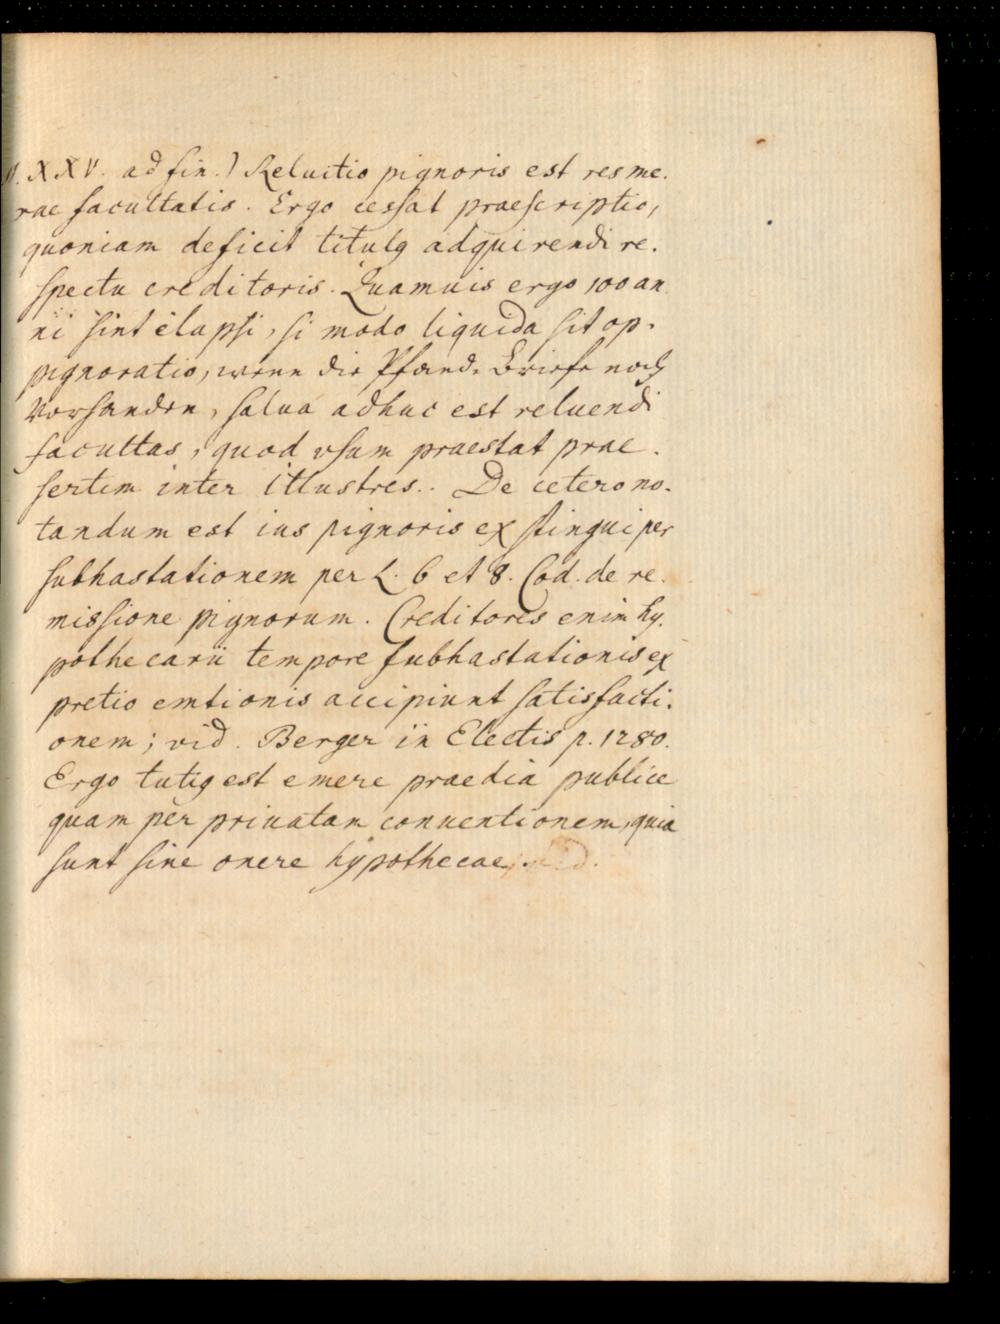 N. XXV. ad fin.) Reluitio pignoris est res me.
rae facultatis. Ergo cessat praescriptio,
quoniam deficit titulꝰ adquirendi re.
spectu creditoris. Quamuis ergo 100 an
ni sint elapsi, si modo liquida sit op.
pignoratio, wenn die Pfand-Briefe noch
vorhanden, salua adhuc est reluendi
facultas, quod vsum praestat prae.
sertim inter illustres. De cetero no.
tandum est ius pignoris exstingui per
subhastationem per L. 6 et 8. Cod. de re.
missione pignorum. Creditores enim hy.
pothecarii tempore subhastationis ex
pretio emtionis accipiunt satisfacti.
onem; vid. Berger in Electis p. 1280.
Ergo tutiꝰ est emere praedia publice
quam per priuatam conuentionem, quia
sunt sine onere hypothecae.